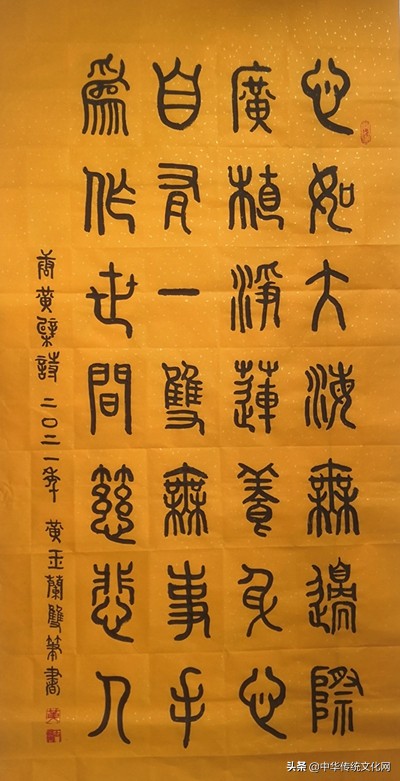 心如大海無邊際
廣植淨蓮養身心
自有一雙無事手
爲作世間慈悲人
唐黃檗詩 二〇二一年 黃玉蘭雙筆書
头条 @中华传统文化网